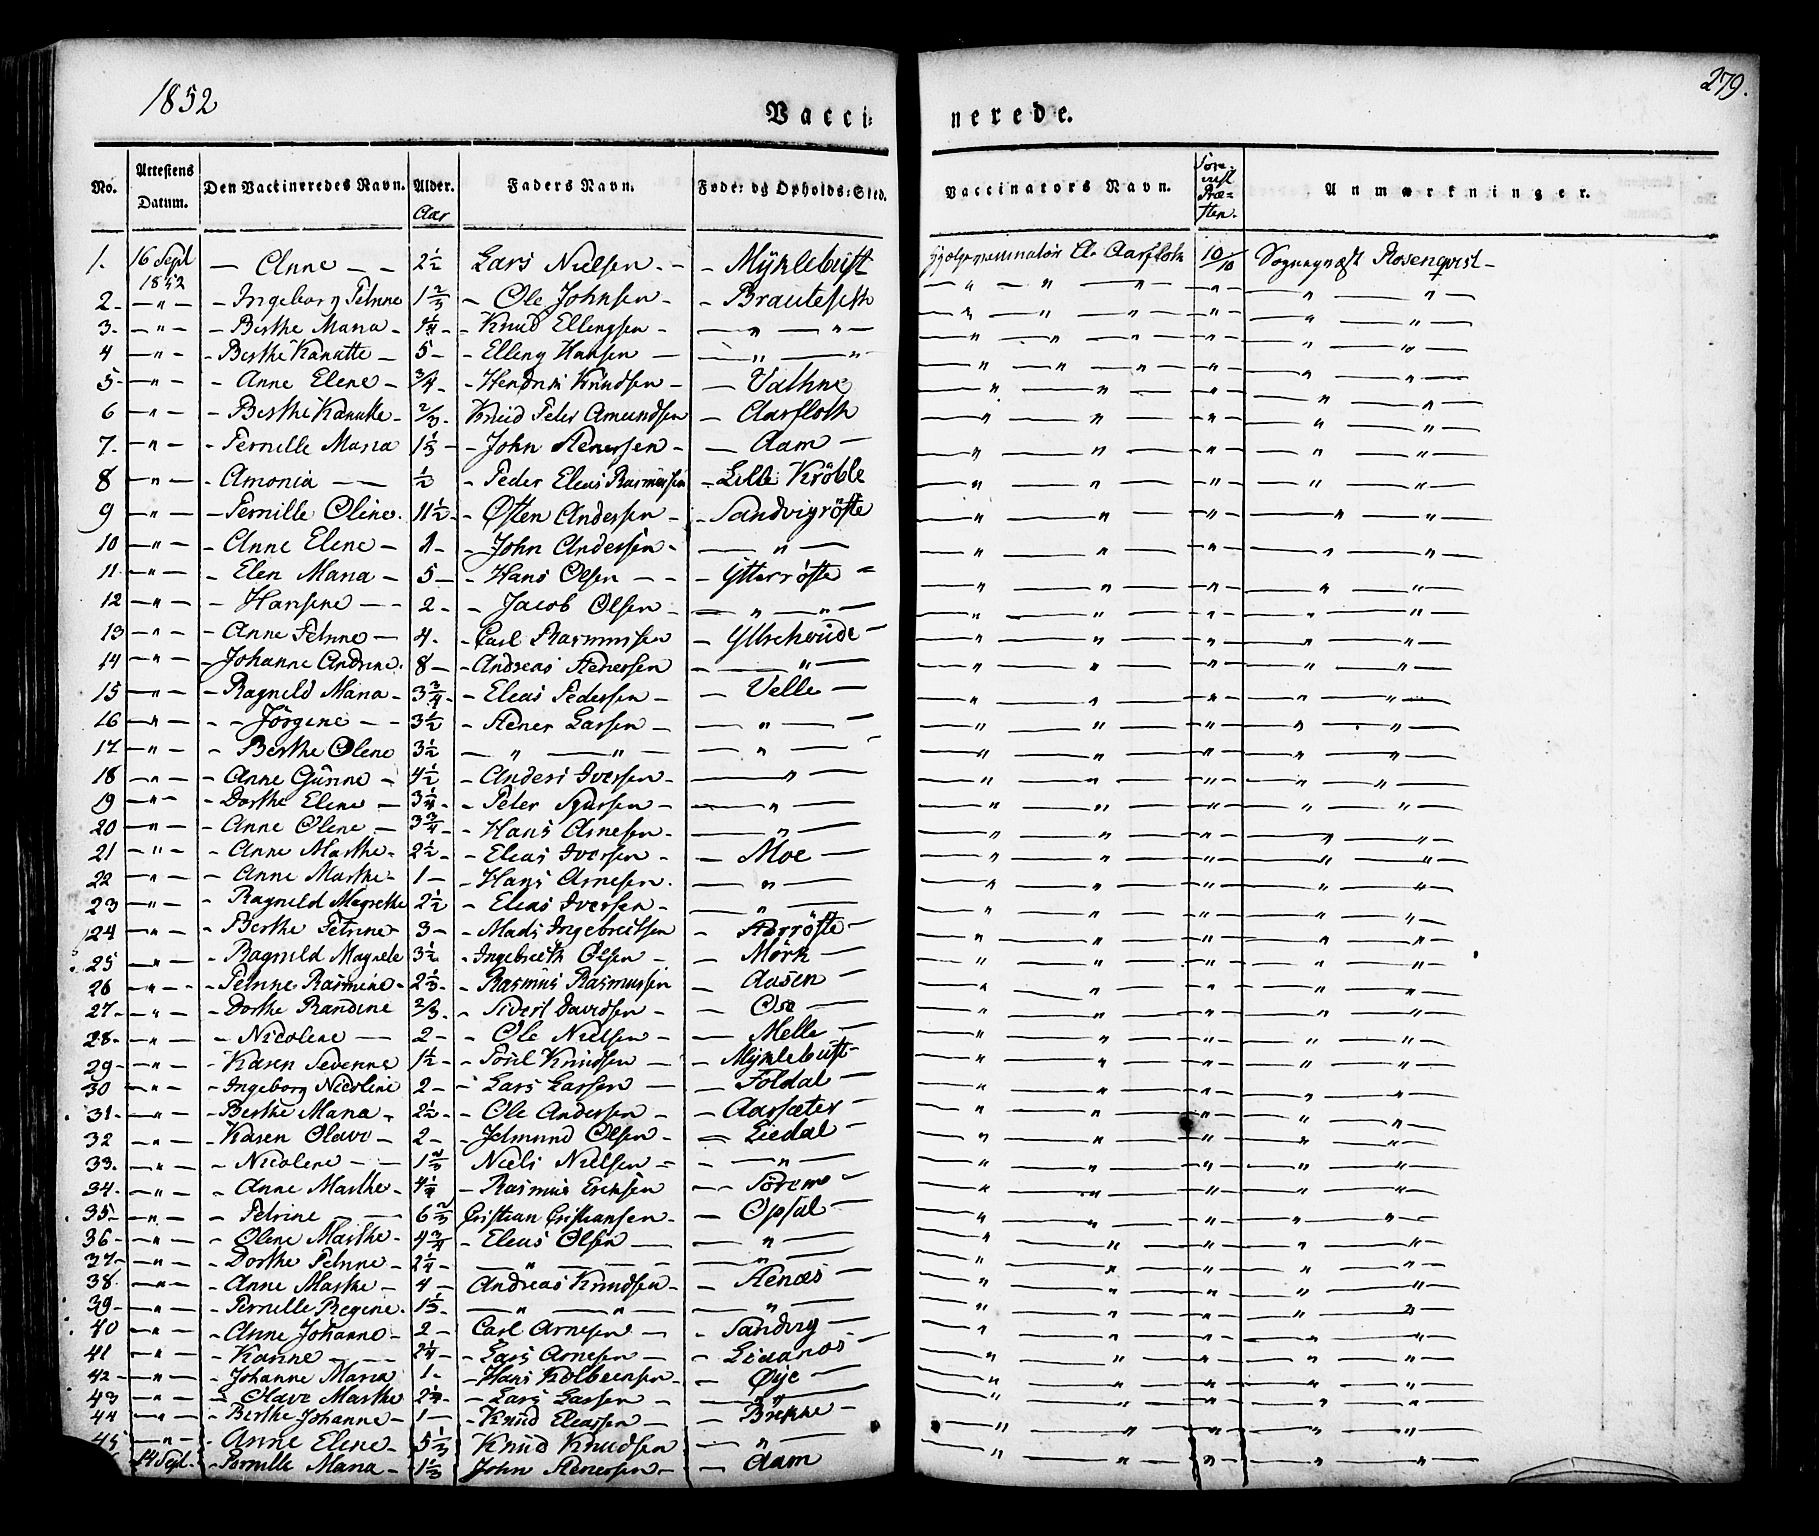 1852
279.
Vacci- nerede.
No. Attestens Datum. Den Vaccineredes Navn. Alder. Aar Faders Navn. Føde- og Opholds-Sted. Vaccinators Navn. Fore-vist Præ-sten. Anmærkninger.
1. 16 Sept 1852 — Anne — — 2½ Lars Nielsen — — Myklebust Aarfloth 10/10 Sognepræst Rosenqvist —
2 — " — - Ingeborg Petrine 1⅔ - Ole Johnsen — - Brauteseth — " — " — " — — " — — " — " —
3 — " — - Berthe Maria - 1¼ - Knud Ellingsen — — " — " — " — " — " — — " — — " — " —
4 — " — - Berthe Kanutte — 5 - - Elling Hansen — — " — " — " — " — " — — " — — " — " —
5 - — " — - Anne Elene - ¾ - - Hendrik Knudsen - — Vathne — " — " — " — — " — — " — " —
6 — " — - Berthe Kanutte - ⅔ - Knud Peter Amundsen — Aarfloth — " — " — — " — — " — " —
7 - — " — - Pernille Maria 1⅓ - - John Stenersen - — Aam — — " — " — — " — — " — " —
8 — " — - Amonia — — ½ - Peder Elias Rasmusen - Lille Krøble — " — " — — " — — " — " —
9 — " — - Pernille Oline. 11½ - Østen Andersen - - Sandvigrøste — " — " — — " — — " — " —
10 — " — - Anne Elene — 1 - - John Andersen - — " — — " — " — — " — — " — " —
11 — " — - Elen Maria — 5 - - Hans Olsen — — - Ytterrøste — " — " — — " — — " — " —
12 — " — - Hansine — — 2 - - Jacob Olsen - — " — " — — " — " — — " — — " — " —
13 — " — - Anne Petrine — 4. - Carl Rasmussen - Ytrehovde — — " — " — — " — — " — " —
14 — " — - Johanne Andrine. 8 - - Andreas Stenersen — " — — " — " — — " — — " — " —
15 — " — - Ragnild Maria - 3¾ - - Elias Pedersen - — Velle — — " — " — — " — — " — " —
16 — " — - Jørgine — — 3½ - Stener Larsen - — " — — " — " — — " — — " — " —
17 — " — - Berthe Oline 3½ — " — " — — " — — " — " — — " — — " — " —
18 — " — - Anne Gurine - 4½ - Anders Iversen - — " — — " — " — — " — — " — " —
19 — " — - Dorthe Elene — 3¼ - - Peter Syvrsen - — " — — " — " — — " — — " — " —
20 — " — - Anne Oline — 3¾ - - Hans Arnesen - — " — — " — " — — " — — " — " —
21 — " — - Anne Marthe - 2½ - - Elias Iversen - — Moe — — " — " — — " — — " — " —
22 — " — - Anne Marthe - 1 — - Hans Arnesen. — " — — " — " — — " — — " — " —
23 — " — - Ragnild Magrethe 2½ - Elias Iversen - — " — — " — " — — " — — " — " —
24 — " — - Berthe Petrine - 3 - - Mads Ingebretsen — " — " — — " — — " — " —
25 — " — - Ragnild Magrete 3½ - Ingebreth Olsen - — Mørk — — " — " — — " — — " — " —
26 — " — - Petrine Rasmine - 2⅓ - - Rasmus Rasmussen — Aasen — — " — " — — " — — " — " —
27 - — " — - Dorthe Randine ⅔ - - Sivert Davidsen - — Ose — — " — " — — " — — " — " —
28 - — " — - Nicoline — 2 - - Ole Nielsen - — Melle — — " — " — — " — — " — " —
29 - — " — - Karen Severine 1½ - - Poul Knudsen — - Myklebust - — " — " — — " — — " — " —
30 — " — - Ingeborg Nicoline 2 - - Lars Larsen — — Foldal — — " — " — — " — — " — " —
31 - — " — - Berthe Maria - 2½ - - Ole Andersen - — Aarsæter — — " — " — — " — — " — " —
32 — " — - Karen Olave - 2 - - Jetmund Olsen - — Liedal — — " — " — — " — — " — " —
33. — " — - Nicoline — — 1⅔ Niels Nielsen — — " — — " — " — — " — — " — " —
34 - — " — - Anne Marthe - 4¼ - Rasmus Ericksen — Sørem — — " — " — — " — — " — " —
35 - — " — - Petrine — — 6⅔ Cristian Cristiansen - — Opsal — — " — " — — " — — " — " —
36 - — " — - Oline Marthe - 4¾ - Elias Olsen — — " — — " — " — — " — — " — " —
37 - — " — - Dorthe Petrine - 2¼ - — " — — " — — " — " — — " — — " — " —
38. — " — - Anne Marthe - 4 — Andreas Knudsen - — Stenæs — — " — " — — " — — " — " —
39 - — " — - Pernille Regine. 1⅓ - — " — " — — " — — " — " — — " — — " — " —
40 — " — - Anne Johanne - 2 - Carl Arnesen — - Sandvig — — " — " — — " — — " — " —
41 — " — - Karine — — 2¼ - - Lars Arnesen — — " — " — — " — — " — " —
42 - — " — - Johanne Maria 1 - - Hans Kolbeinsen - — Øye — — " — " — — " — — " — " —
43 — " — - Olave Marthe 2¼ - - Lars Larsen — — " — — " — " — — " — — " — " —
44 — " — - Berthe Johanne - 1 — - Knud Eliassen — — Brekke — — " — " — — " — — " — " —
45 — " — - Anne Elene - 5⅓ - Knud Knudsen — " — — " — " — — " — — " — " —
14 Sept. - Pernille Maria - 1⅓ - John Stenersen — — Aam — " — — " — — " — " —